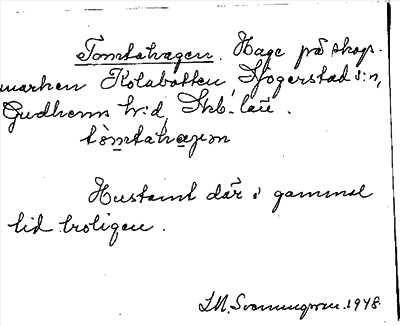 Tomtahagen. Hage på skogs-
marken Kolabotten Sjogerstad s:n,
Gudhems h:d, Skb. län.
tòmtahagen
Hustomt där i gammal
tid troligen.
1948.